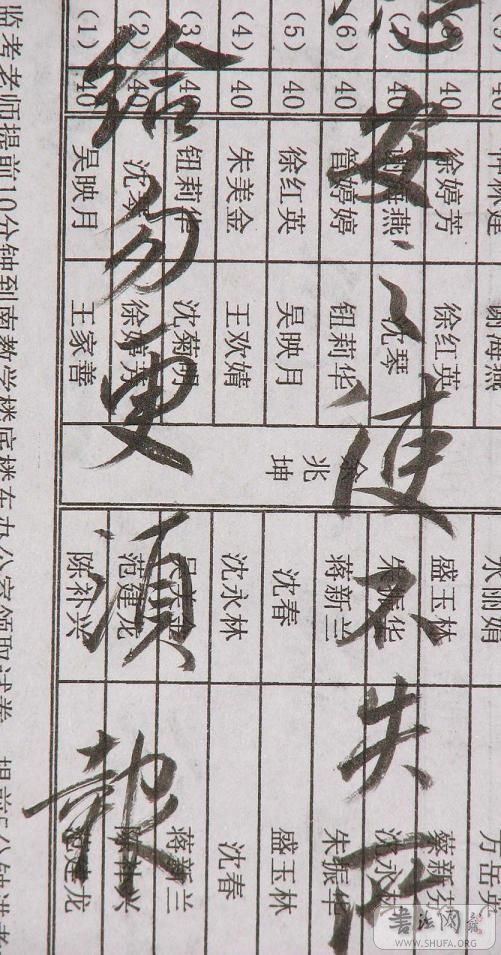 安、使不失所
给勿更須報
40 徐婷芳 徐红英 盛玉林 蔡新芬
(7) 40 海燕 沈琴 朱振华 沈永林
(6) 40 管婷婷 钮莉华 蒋新兰 朱振华
(5) 40 徐红英 吴映月 沈春 盛玉林
(4) 40 朱美金 王欢婧 兆坤 沈永林 沈春
(3) 40 钮莉华 沈菊明 蒋新兰
(2) 40 沈琴 徐婷芳 范建龙 陈补兴
(1) 40 吴映月 王家善 陈补兴 范建龙
监考老师提前10分钟到南教学楼底楼东办公室领取试卷，提前5分钟进考
书法网
WWW.SHUFA.ORG